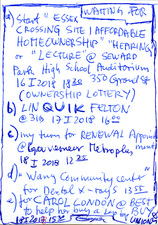 WAITING FOR
a) Start "ESSEX
CROSSING SITE | AFFORDABLE
HOMEOWNERSHIP" "HEARING"
or "LECTURE" @ SEWARD
Park High School Auditorium
16 I 2018 18 30 350 Grand St
(OWNERSHIP LOTTERY)
b) LIN QUIK FELTON
@ 310 17 I 2018 16 00
c) my turn for RENEWAL Appoint
ment @ Metroplus
18 I 2018 12 20
d) "Wang Community Center"
for Dental X-rays 13
e) for CAROL LONDON @ BEST
to help her buy a by BUY
18 I 2018 15 UNION SQ